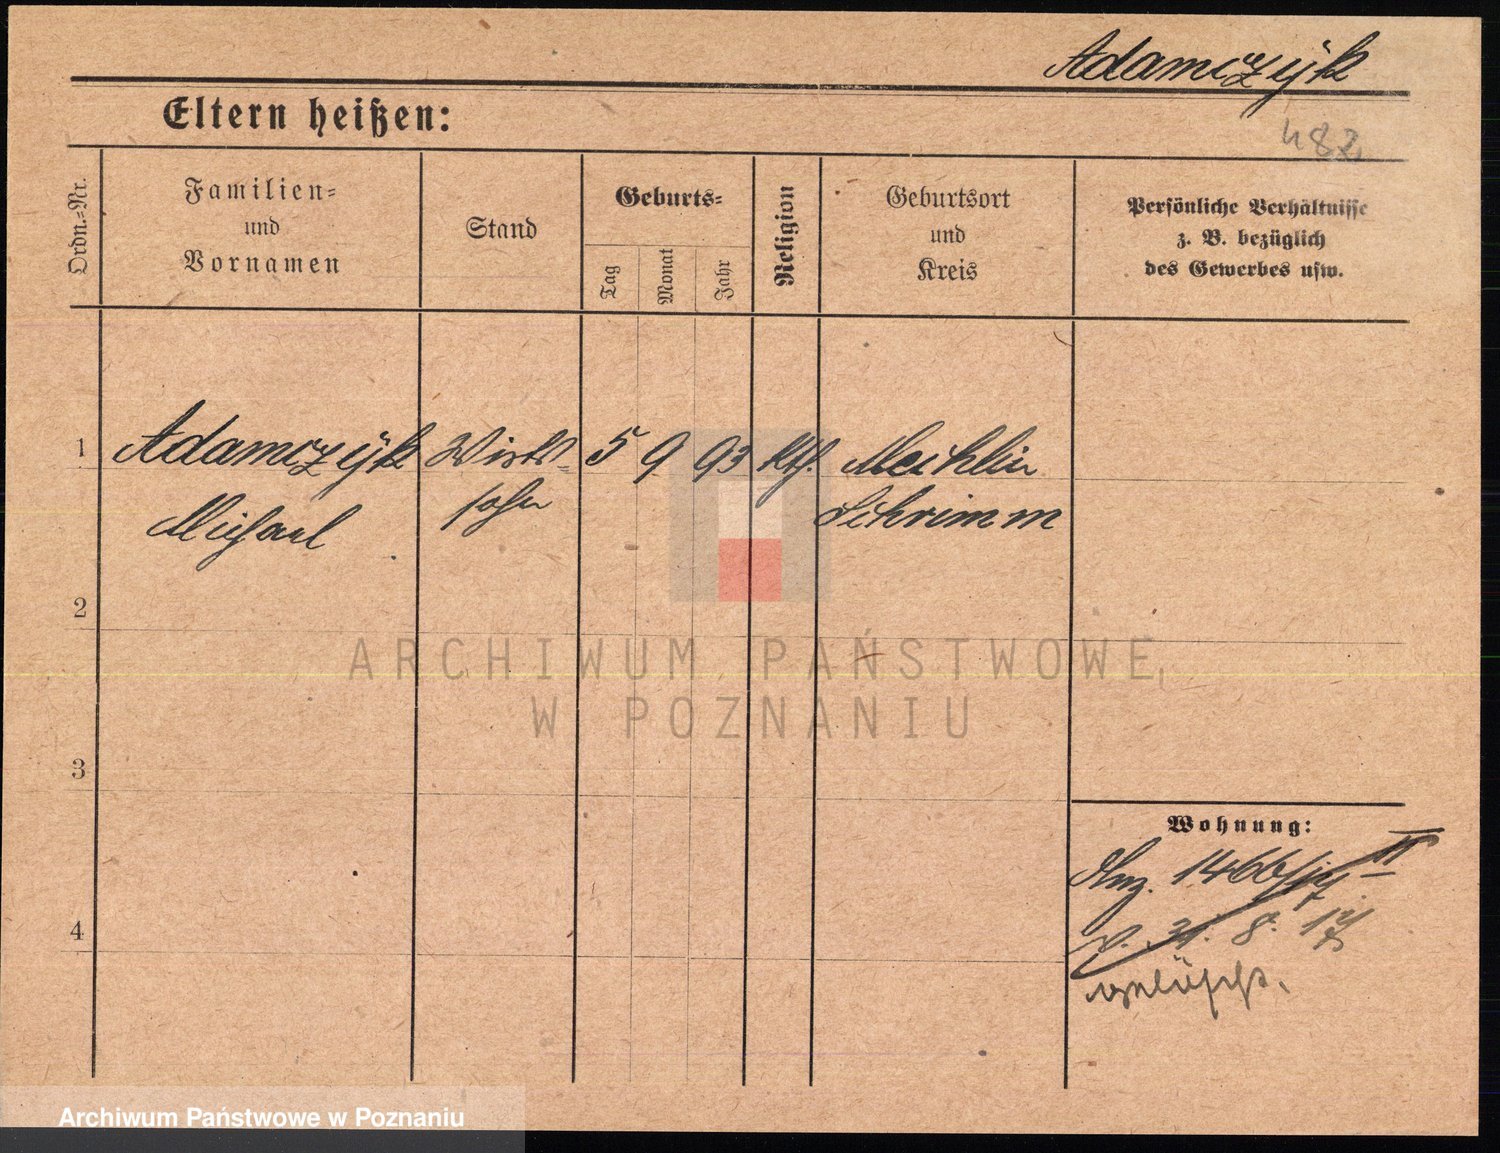 Adamczÿk
Eltern heißen:
482
Ordn.=Nr.
Familien=
und
Vornamen
Stand
Geburts=
Tag
Monat
Jahr
Religion
Geburtsort
und
Kreis
Persönliche Verhältnisse
z. B. bezüglich
des Gewerbes usw.
1 Adamczÿk Wirts= 5 9 93 kth. Mechlin
Michael sohn Schrimm
2
3
4
Wohnung:
31. 8. 17
gelöscht.
ARCHIWUM PAŃSTWOWE
W POZNANIU
Archiwum Państwowe w Poznaniu